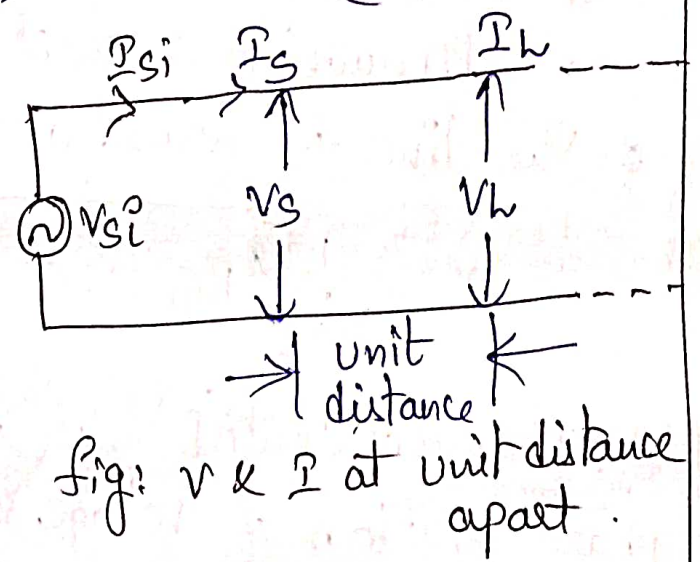 Isi Is IL
Vsi Vs VL
unit
distance
fig: V & I at unit distance
apart.